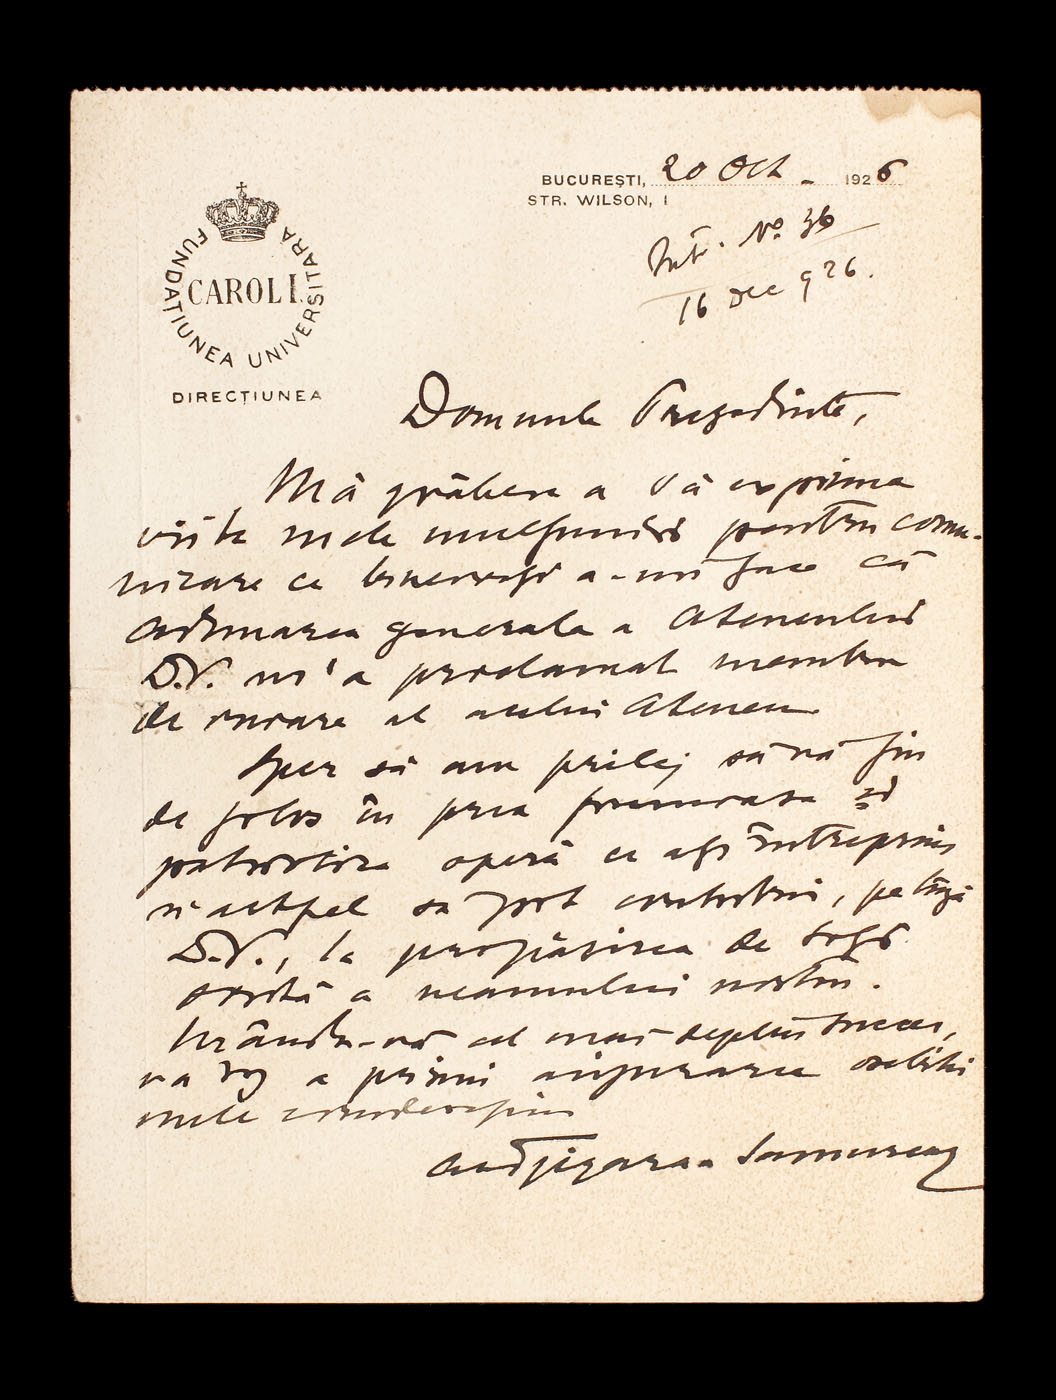 BUCUREȘTI, 20 Oct - 1926
STR. WILSON, 1
FUNDAȚIUNEA UNIVERSITARA
CAROL I.
DIRECȚIUNEA
Nº 36
16 Dec 926.
Domnule Președinte,
Mă grăbesc a Vă exprima
viile mele mulțumiri pentru comu-
nicarea ce binevoiți a-mi face că
Adunarea generala a Ateneului
D.V. m'a proclamat membru
de onoare al acelui Ateneu
Sper să am prilej să vă fiu
de folos în prea frumoasa și
patriotica operă ce ați întreprins
și astfel sa pot contribui, pe lângă
D.V., la propășirea de
a neamului nostru.
Urându-vă cel mai deplin succes,
va rog a primi asigurarea osebitei
mele considerațiuni
Al Tzigara-Samurcaș